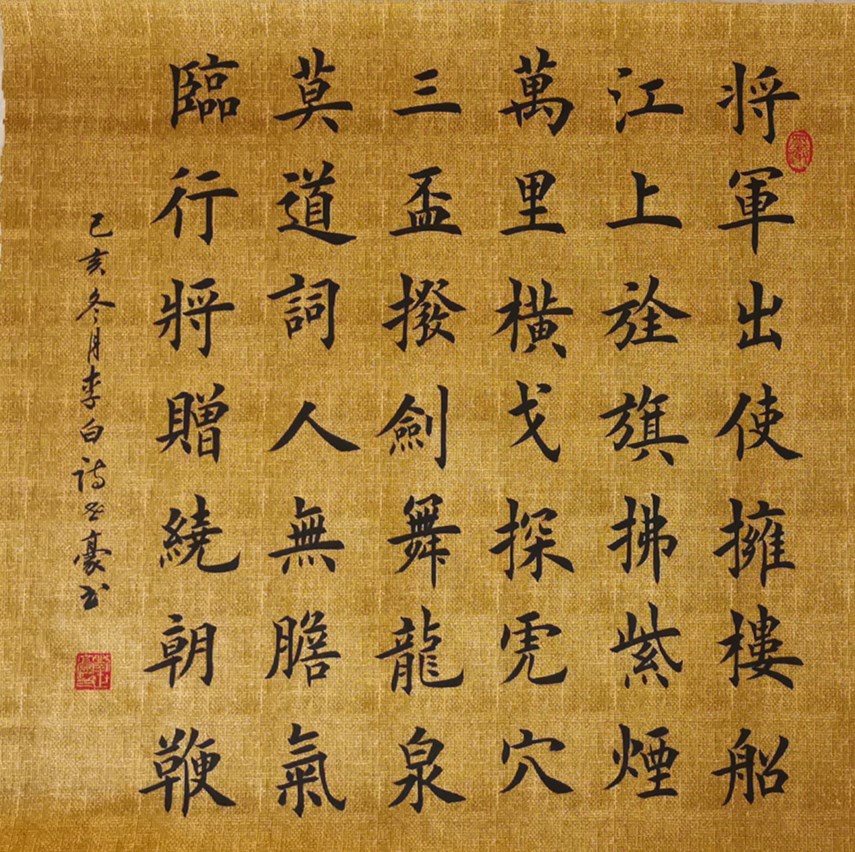 将軍出使擁樓船
江上旌旗拂紫煙
萬里橫戈探虎穴
三盃撥劍舞龍泉
莫道詞人無膽氣
臨行將贈繞朝鞭
己亥冬月李白詩
豪书